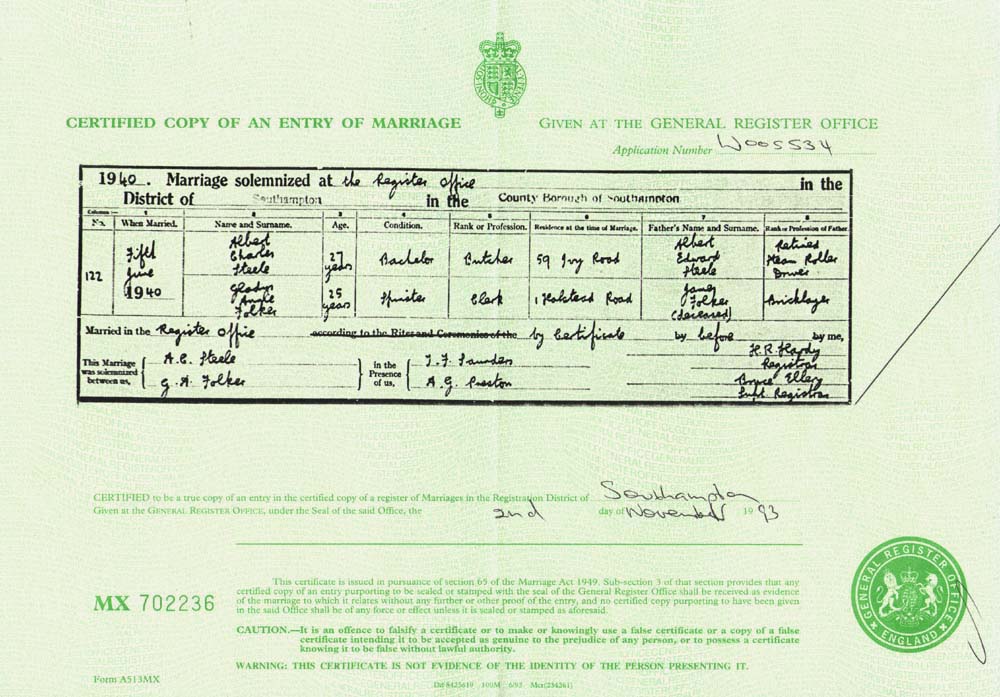 CERTIFIED COPY OF AN ENTRY OF MARRIAGE
GIVEN AT THE GENERAL REGISTER OFFICE
Application Number W005534
1940. Marriage solemnized at the Register Office in the
District of Southampton in the County Borough of Southampton
Columns:— 1 2 3 4 5 6 7 8
No. When Married. Name and Surname. Age. Condition. Rank or Profession. Residence at the time of Marriage. Father's Name and Surname. Rank or Profession of Father
122
Fifth June 1940
Albert Charles Steele
27 years
Bachelor
Butcher
59 Ivy Road
Albert Edward Steele
Retired Steam Roller Driver
Gladys Annie Folker
25 years
Spinster
Clerk
1 Halstead Road
James Folker (deceased)
Bricklayer
Married in the Register Office according to the Rites and Ceremonies of the by Certificate by before by me,
This Marriage was solemnized between us,
A.C. Steele
G. A. Folker
in the Presence of us,
A. G. Preston
H.R. Hardy
Registrar
Bruce Ellery
Supt Registrar
CERTIFIED to be a true copy of an entry in the certified copy of a register of Marriages in the Registration District of Southampton
Given at the GENERAL REGISTER OFFICE, under the Seal of the said Office, the 2nd day of November 1993
MX 702236
This certificate is issued in pursuance of section 65 of the Marriage Act 1949. Sub-section 3 of that section provides that any
certified copy of an entry purporting to be sealed or stamped with the seal of the General Register Office shall be received as evidence
of the marriage to which it relates without any further or other proof of the entry, and no certified copy purporting to have been given
in the said Office shall be of any force or effect unless it is sealed or stamped as aforesaid.
CAUTION.—It is an offence to falsify a certificate or to make or knowingly use a false certificate or a copy of a false
certificate intending it to be accepted as genuine to the prejudice of any person, or to possess a certificate
knowing it to be false without lawful authority.
WARNING: THIS CERTIFICATE IS NOT EVIDENCE OF THE IDENTITY OF THE PERSON PRESENTING IT.
GENERAL REGISTER OFFICE
ENGLAND
Form A513MX
Dd 8425619 100M 6/93 Mcr(234261)